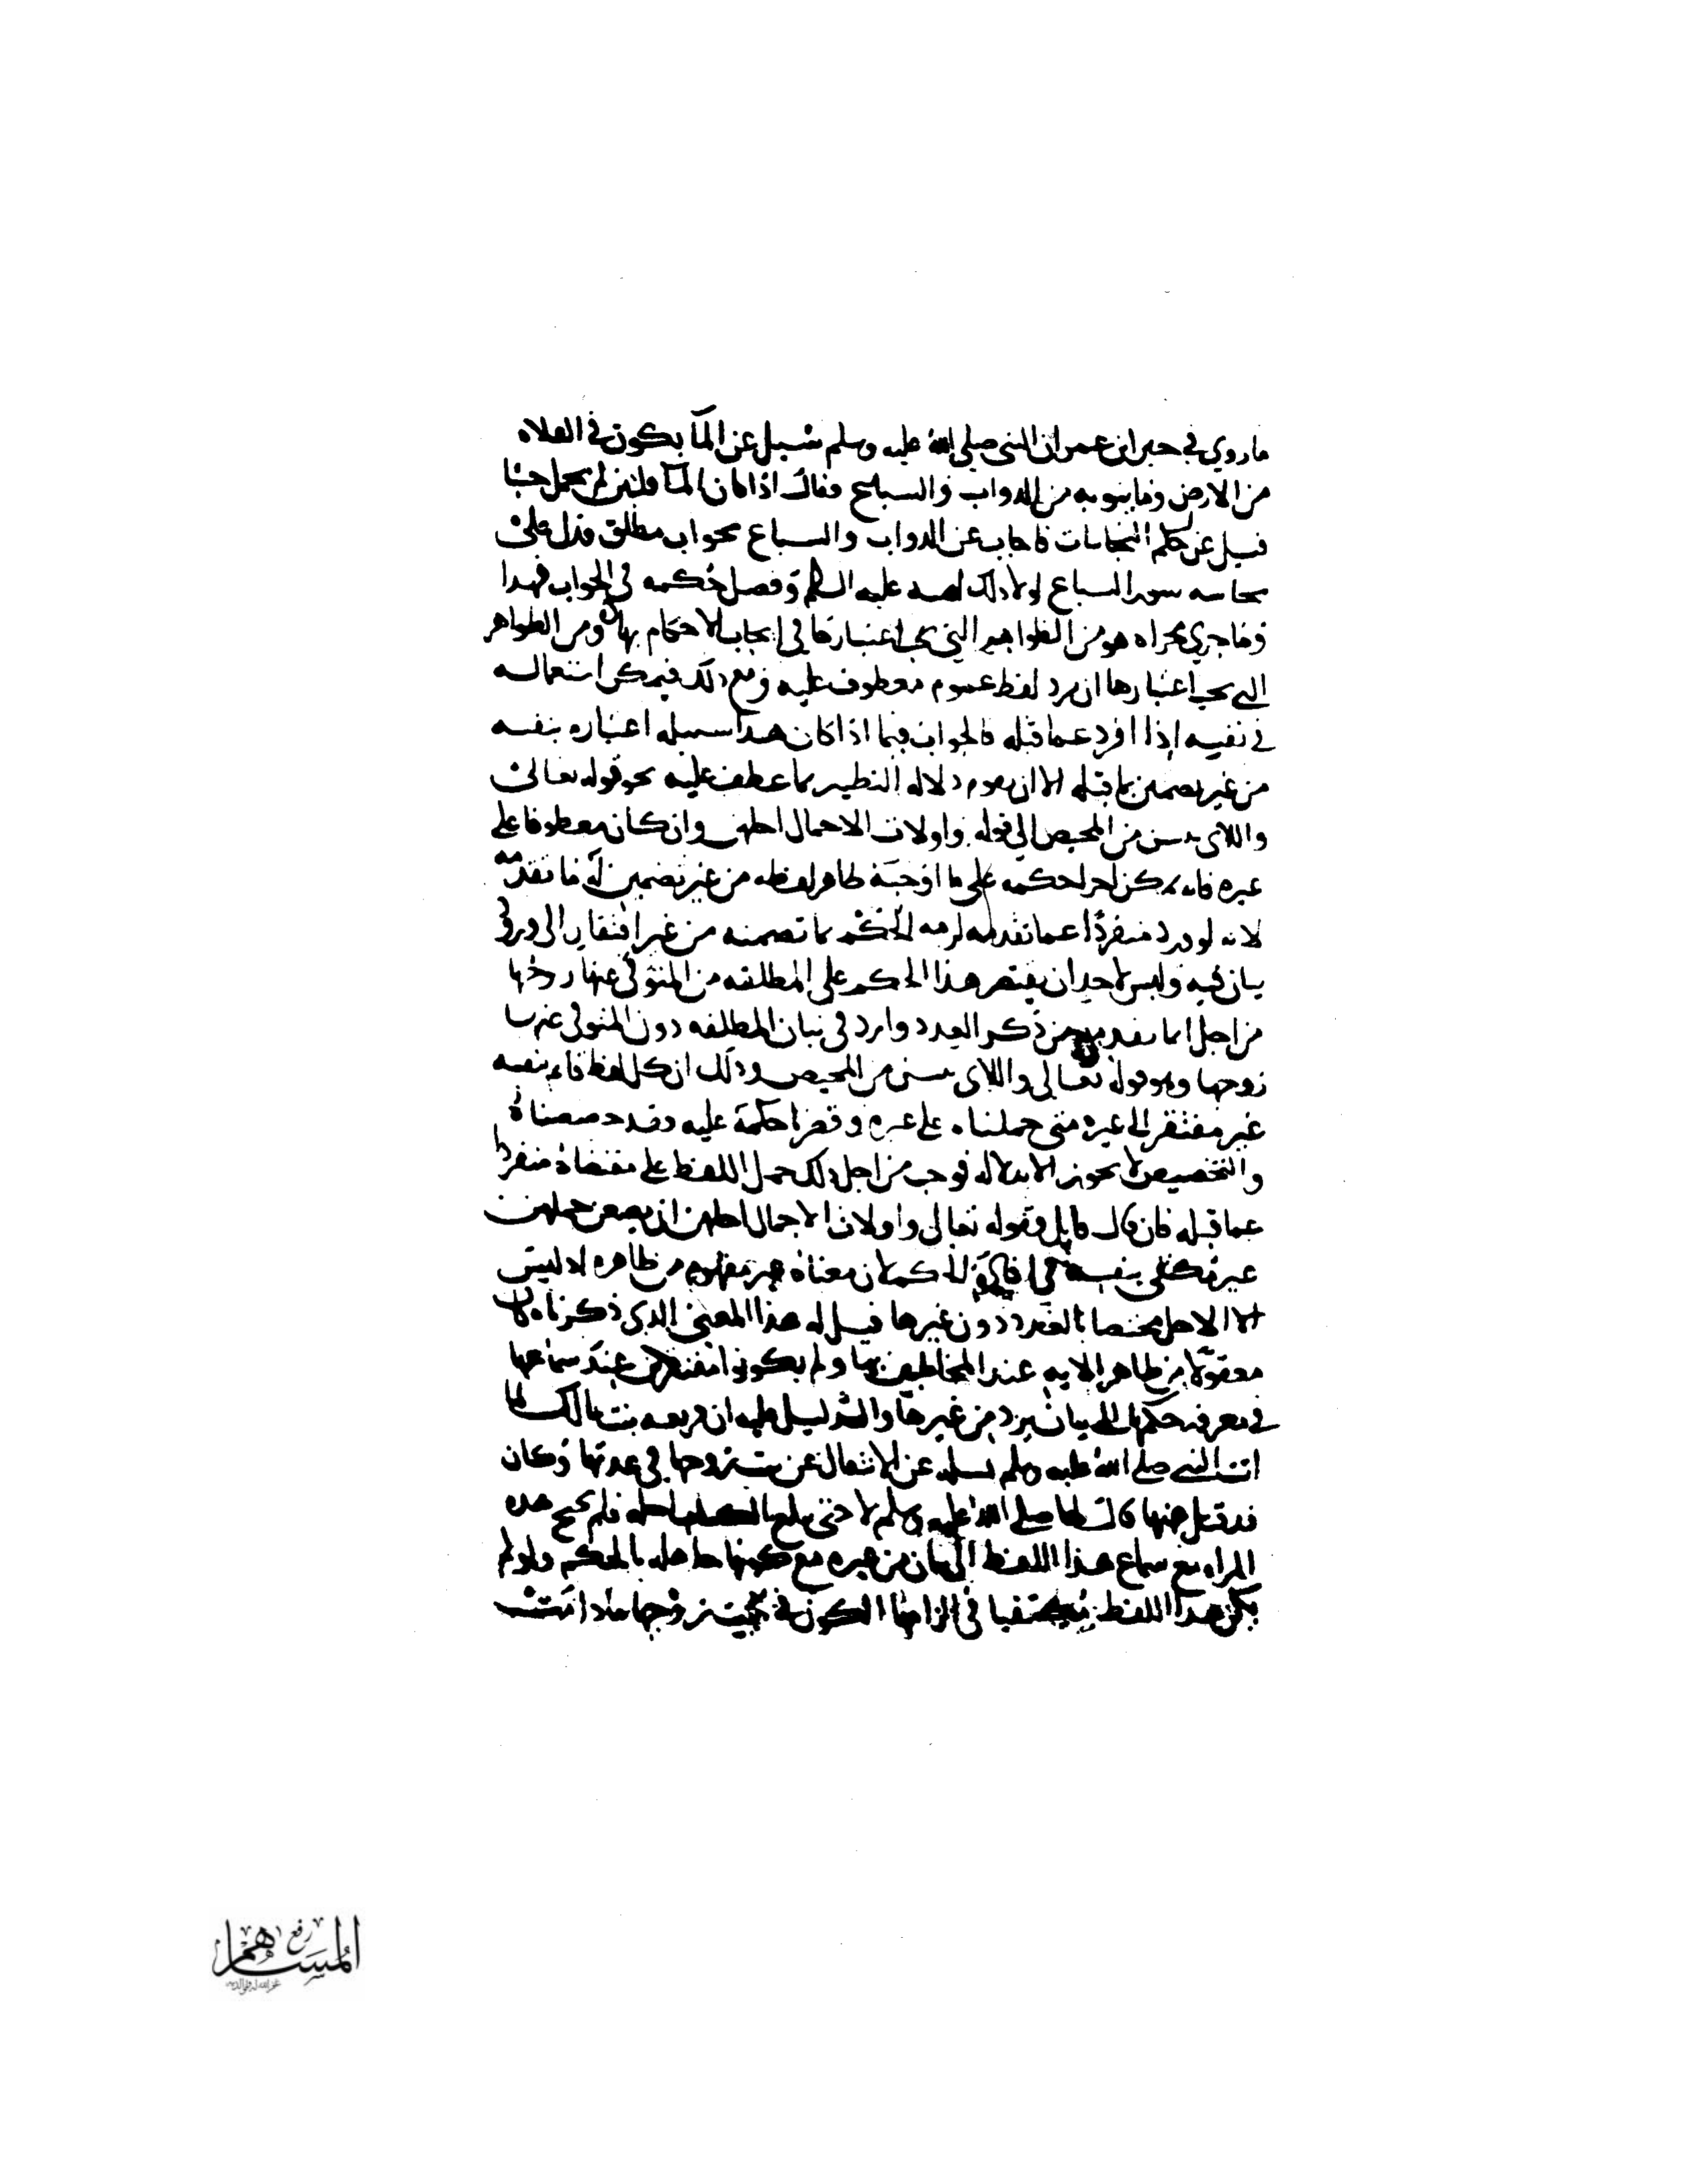 ما روي في خبر ابن عمر ان النبي صلى الله عليه وسلم سيل عن المآ يكون في الفلاه
من الارض وما ينوبه من الدواب والسباع فقال اذا كان المآ قلتين لم يحمل خبثا
فسيل عن حكم النجاسات فاجاب عن الدواب والسباع بجواب مطلق فدل على
نجاسه سور السباع لولا ذلك عليه السلم وفصل حكمه في الجواب فهذا
وما جري مجراه هو من الظواهر التي يجب اعتبارها في ايجاب الاحكام بها ومن الظواهر
التي يجب اعتبارها ان يرد لفظ عموم معطوف عليه ومع ذلك فيمكن استعماله
في نفسه اذا افرد عما قبله فالجواب فيما اذا كان هذا سبيله اعتباره بنفسه
من غير تضمين بما قبله الا ان يقوم دلاله النظير بما عطف عليه نحو قوله تعالى
واللاى يسن من المحيض الى قوله واولات الاحمال اجلهن وان كان معطوفا على
غيره فانه يمكن اجرا حكمه على ما اوجبه ظاهر لفظه من غير تضمين له ما تقدمه
لانه لو ورد منفردًا عما تقدمه لزمه الحكم بما تضمنه من غير افتقار الى ورود
بيان فيه وليس لاحد ان يقتصر هذا الحكم على المطلقه من المتوفى عنها زوجها
من اجل انما تقدم من ذكر العدد وارد في بيان المطلقه دون المتوفى عنها
زوجها وهو قوله تعالى واللاى يسن من المحيض وذلك ان كل لفظ قام بنفسه
غير مفتقر الى غيره متى حملناه على غيره وقصرنا حكمه عليه فقد خصصناه
والتخصيص لا يجوز الا بدلاله فوجب من اجل ذلك حمل اللفظ على مقتضاه منفردا
عما قبله فان قال قايل قوله تعالى واولات الاحمال اجلهن ان يضعن حملهن
غير مكتفى بنفسه في افادة الحكم لان معناه غير مفهوم من ظاهره اذ ليس
الاجل مختصا بالعدد دون غيرها قيل له هذا المعنى الذي ذكرناه كان
معقولا من ظاهر الايه عند المخاطبين بها ولم يكونوا مفتقرين عند سماعها
في معرفه حكمها الى بيان يرد من غيرها والدليل عليه ان فريعه بنت مالك لما
اتت النبي صلى الله عليه وسلم تسله عن الانتقال عن بيت زوجها في عدتها وكان
قد قتل عنها قال لها صلى الله عليه وسلم لا حتى يبلغ الكتاب اجله فلم تحتج هذه
المراه مع سماع هذا اللفظ الى بيان من غيره مع كونها جاهله بالحكم ولو لم
يكن هذا اللفظ مكتفيا في الزامها الكون في بيت زوجها ما دامت
المساهم
رفع